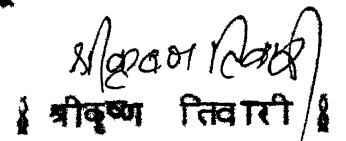 श्रीकृष्ण तिवारी
श्रीकृष्ण तिवारी